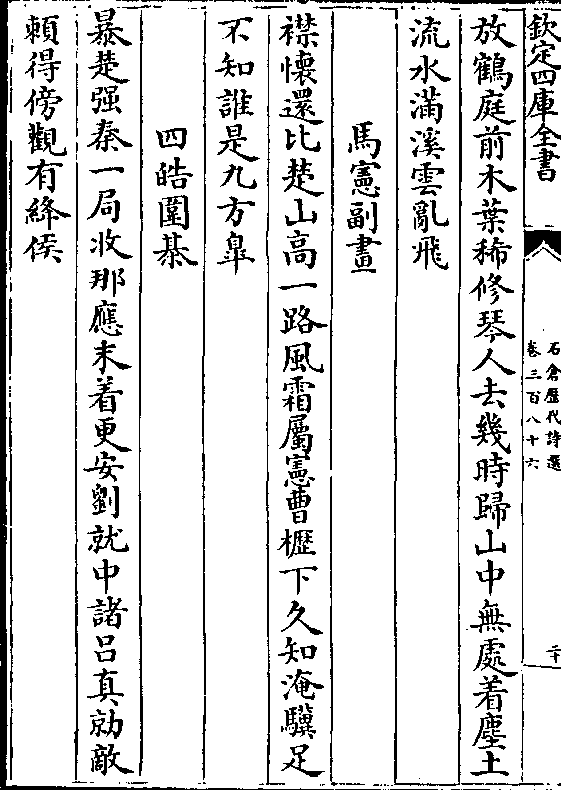 欽定四庫全書
石倉歷代詩選
卷三百八十六
二十
放鶴庭前木葉稀修琴人去幾時歸山中無處着塵土
流水滿溪雲亂飛
馬憲副畫
襟懷還比楚山高一路風霜屬憲曹櫪下久知淹驥足
不知誰是九方臯
四皓圍棊
暴楚强秦一局收那應末着更安劉就中諸呂真勍敵
賴得傍觀有絳侯